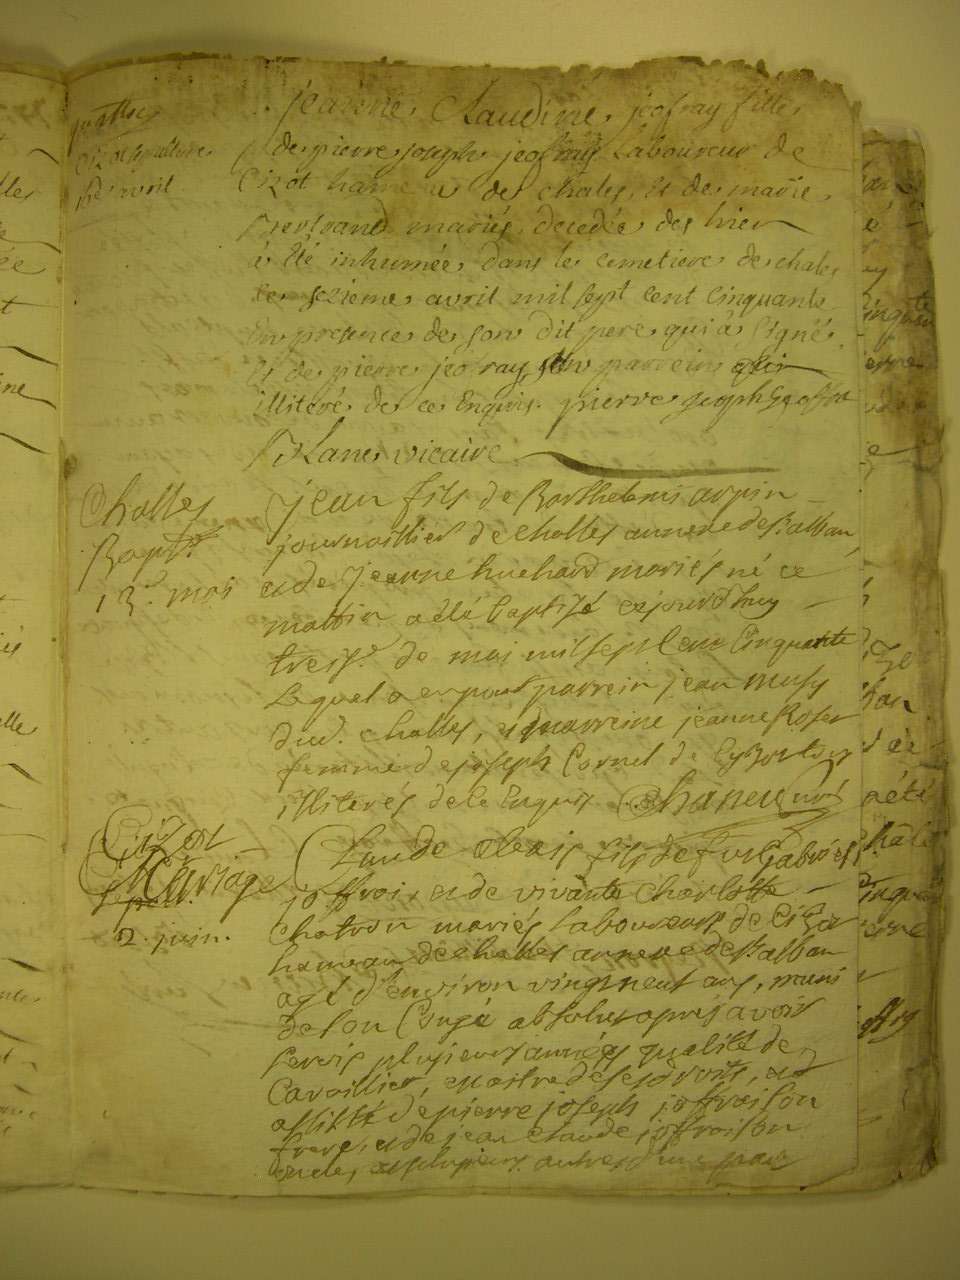 jeanne Claudine jeofray fille
de pierre joseph jeofray Laboureur de
Cizot hameau de chales, et de marie
Bertrand mariés, decedée des hier
à été inhumée dans le cemetiere de chales
le sezieme avril mil sept cent cinquante
en presence de son dit pere qui à signé
et de pierre jeofray son parrein qui
illiteré de ce Enquis. pierre joseph
Blanc vicaire
sepulture
avril
Challes
Bapt.
13e mai
jean fils de Barthelemi arpin
journaillier de Challes annexe de Balban
et de jeanne huchard mariés né ce
mattin a été baptizé cejourd'huy
treize de mai mil sept cent Cinquante
Lequel a eu pour parrein jean musy
dud. Challes, et marreine jeanne Roser
femme de joseph Cornel de
illiterés de ce Enquis curé
Cizot
Mariage
2. juin.
Claude Alexis fils de fut Gabriel
joffrai, et de vivante Charlotte
Chatron mariés Laboureurs de Cizot
hameau de Challes annexe de Balban
agé d'environ vingt neuf ans, muni
de son Congé absolu apres avoir
servis plusieurs années qualité de
Cavaillier, et maitre de ses droits, et
assisté de pierre joseph joffrai son
frere, et de jean Claude joffrai son
oncle, et plusieurs autres d'une part